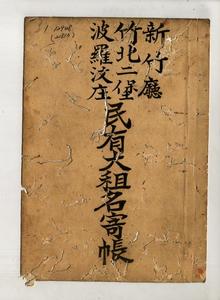 新竹廳
竹北二堡
波羅汶庄
民有大租名寄帳